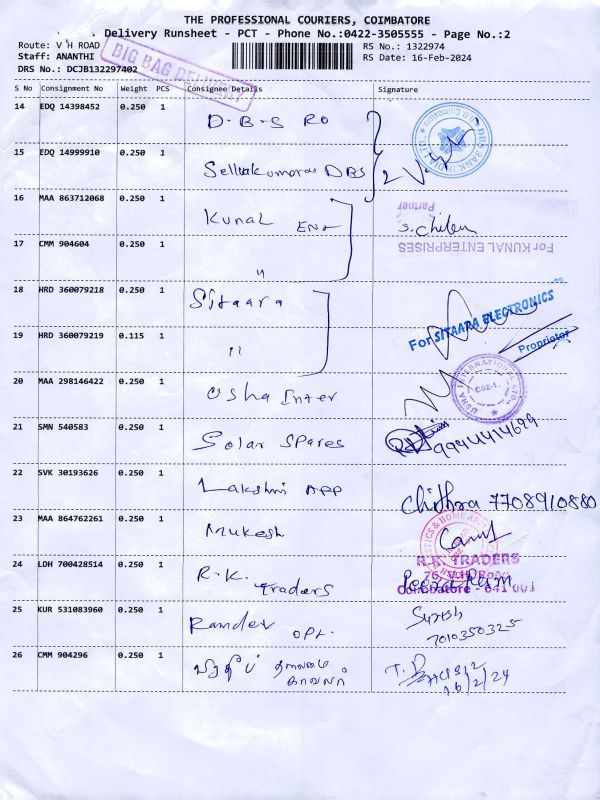 THE PROFESSIONAL COURIERS, COIMBATORE
Delivery Runsheet - PCT - Phone No.:0422-3505555 - Page No.:2
Route: V H ROAD
RS No.: 1322974
Staff: ANANTHI
RS Date: 16-Feb-2024
DRS No.: DCJB132297402
BIG BAG DELIVERY
S No Consignment No Weight PCS Consignee Details Signature
14 EDQ 14398452 0.250 1 D-B-S RO
DBS BANK INDIA LTD.
15 EDQ 14999910 0.250 1 Selvakumar DBS 2
16 MAA 863712068 0.250 1 Kunal Ent S. Chitra
Partner
For KUNAL ENTERPRISES
17 CMM 904604 0.250 1 "
18 HRD 360079218 0.250 1 Sitaara
For SITAARA ELECTRONICS
Proprietor
19 HRD 360079219 0.115 1 "
20 MAA 298146422 0.250 1 Usha Inter
USHA INTERNATIONAL LTD.
CBE-1.
21 SMN 540583 0.250 1 Solar Spares 9944414699
22 SVK 30193626 0.250 1 Lakshmi APP Chithra 7708910880
23 MAA 864762261 0.250 1 Mukesh
24 LDH 700428514 0.250 1 R.K. Traders
R.K. TRADERS
76, V.H. Road
Coimbatore - 641 001
25 KUR 531083960 0.250 1 Ramdev OPt. Suresh
7010350325
26 CMM 904296 0.250 1
16/2/24